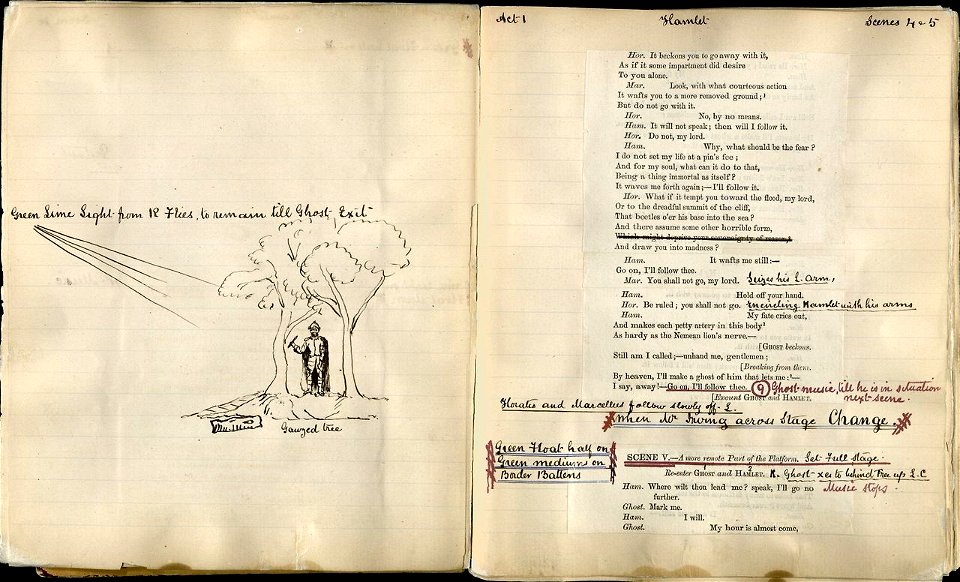 Green Lime Light from R Flies, to remain till Ghost Exit
Gauzed tree
Act 1 Hamlet Scenes 4 & 5
Hor. It beckons you to go away with it,
As if it some impartment did desire
To you alone.
Mar. Look, with what courteous action
It wafts you to a more removed ground;¹
But do not go with it.
Hor. No, by no means.
Ham. It will not speak; then will I follow it.
Hor. Do not, my lord.
Ham. Why, what should be the fear?
I do not set my life at a pin's fee;
And for my soul, what can it do to that,
Being a thing immortal as itself?
It waves me forth again;—I'll follow it.
Hor. What if it tempt you toward the flood, my lord,
Or to the dreadful summit of the cliff,
That beetles o'er his base into the sea?
And there assume some other horrible form,
Which might deprive your sovereignty of reason,
And draw you into madness?
Ham. It wafts me still:—
Go on, I'll follow thee.
Mar. You shall not go, my lord. Seizes his L. arm,
Ham. Hold off your hand.
Hor. Be ruled; you shall not go. Encircling Hamlet with his arms
Ham. My fate cries out,
And makes each petty artery in this body
As hardy as the Nemean lion's nerve.—
[GHOST beckons.
Still am I called;—unhand me, gentlemen;
[Breaking from them.
By heaven, I'll make a ghost of him that lets me:—
I say, away!—Go on, I'll follow thee. (9) Ghost music, till he is in situation
next scene.
[Exeunt GHOST and HAMLET.
Horatio and Marcellus follow slowly off L.
When Mr Irving across Stage Change.
Green Float half on
Green mediums on
Border Battens
SCENE V.—A more remote Part of the Platform. Set Full Stage.
Re-enter GHOST and HAMLET. R. Ghost xes to behind Tree up L.C
Ham. Where wilt thou lead me? speak, I'll go no Music stops.
further.
Ghost. Mark me.
Ham. I will.
Ghost. My hour is almost come,